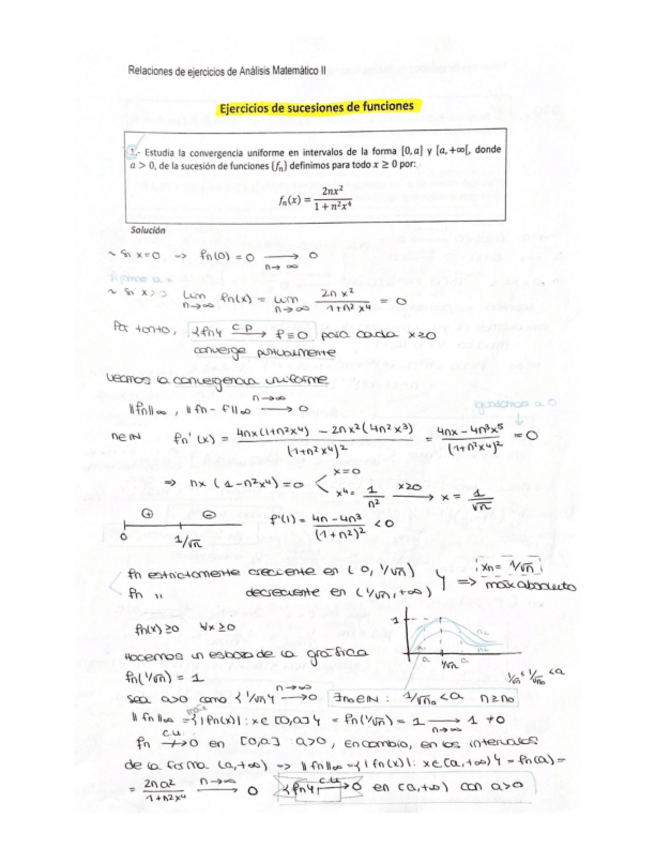 Relaciones de ejercicios de Análisis Matemático II
Ejercicios de sucesiones de funciones
1.- Estudia la convergencia uniforme en intervalos de la forma [0, a] y [a, +∞[, donde
a > 0, de la sucesión de funciones {fn} definimos para todo x ≥ 0 por:
fn(x) = 2nx² / 1 + n²x⁴
Solución
~ Si x=0 → fn(0) = 0 ⟶ n→∞ 0
~ Si x>0 lim n→∞ fn(x) = lim n→∞ 2nx² / 1+n²x⁴ = 0
Por tanto, {fn} C.P. ⟶ f≡0 para cada x≥0
converge puntualmente
Veamos la convergencia uniforme
||fn||∞, ||fn - f||∞ n→∞ ⟶ 0
igualamos a 0
n∈ℕ fn'(x) = 4nx(1+n²x⁴) - 2nx²(4n²x³) / (1+n²x⁴)² = 4nx - 4n³x⁵ / (1+n²x⁴)² = 0
⇒ nx (1-n²x⁴) = 0 < x=0
x⁴ = 1/n² x≥0 ⟶ x = 1/√n
+ -
0 1/√n
f'(1) = 4n - 4n³ / (1+n²)² < 0
fn estrictamente creciente en (0, 1/√n)
fn " decreciente en (1/√n, +∞) } ⇒ xn = 1/√n máx absoluto
fn(x) ≥ 0 ∀x ≥ 0
1
Hacemos un esbozo de la gráfica
a 1/√n a
fn(1/√n) = 1
1/√n < 1/√n₀ < a
Sea a>0 como {1/√n} n→∞ ⟶ 0 ∃n₀∈ℕ: 1/√n₀ < a n≥n₀
||fn||∞ = {|fn(x)| : x∈[0,a]} = fn(1/√n) = 1 ⟶ n→∞ 1 ≠ 0
fn c.u. ↛ 0 en [0,a] a>0, en cambio, en los intervalos
de la forma (a,+∞) → ||fn||∞ = {|fn(x)| : x∈[a,+∞)} = fn(a) =
= 2na² / 1+n²x⁴ n→∞ ⟶ 0 {fn} c.u. ⟶ 0 en (a,+∞) con a>0